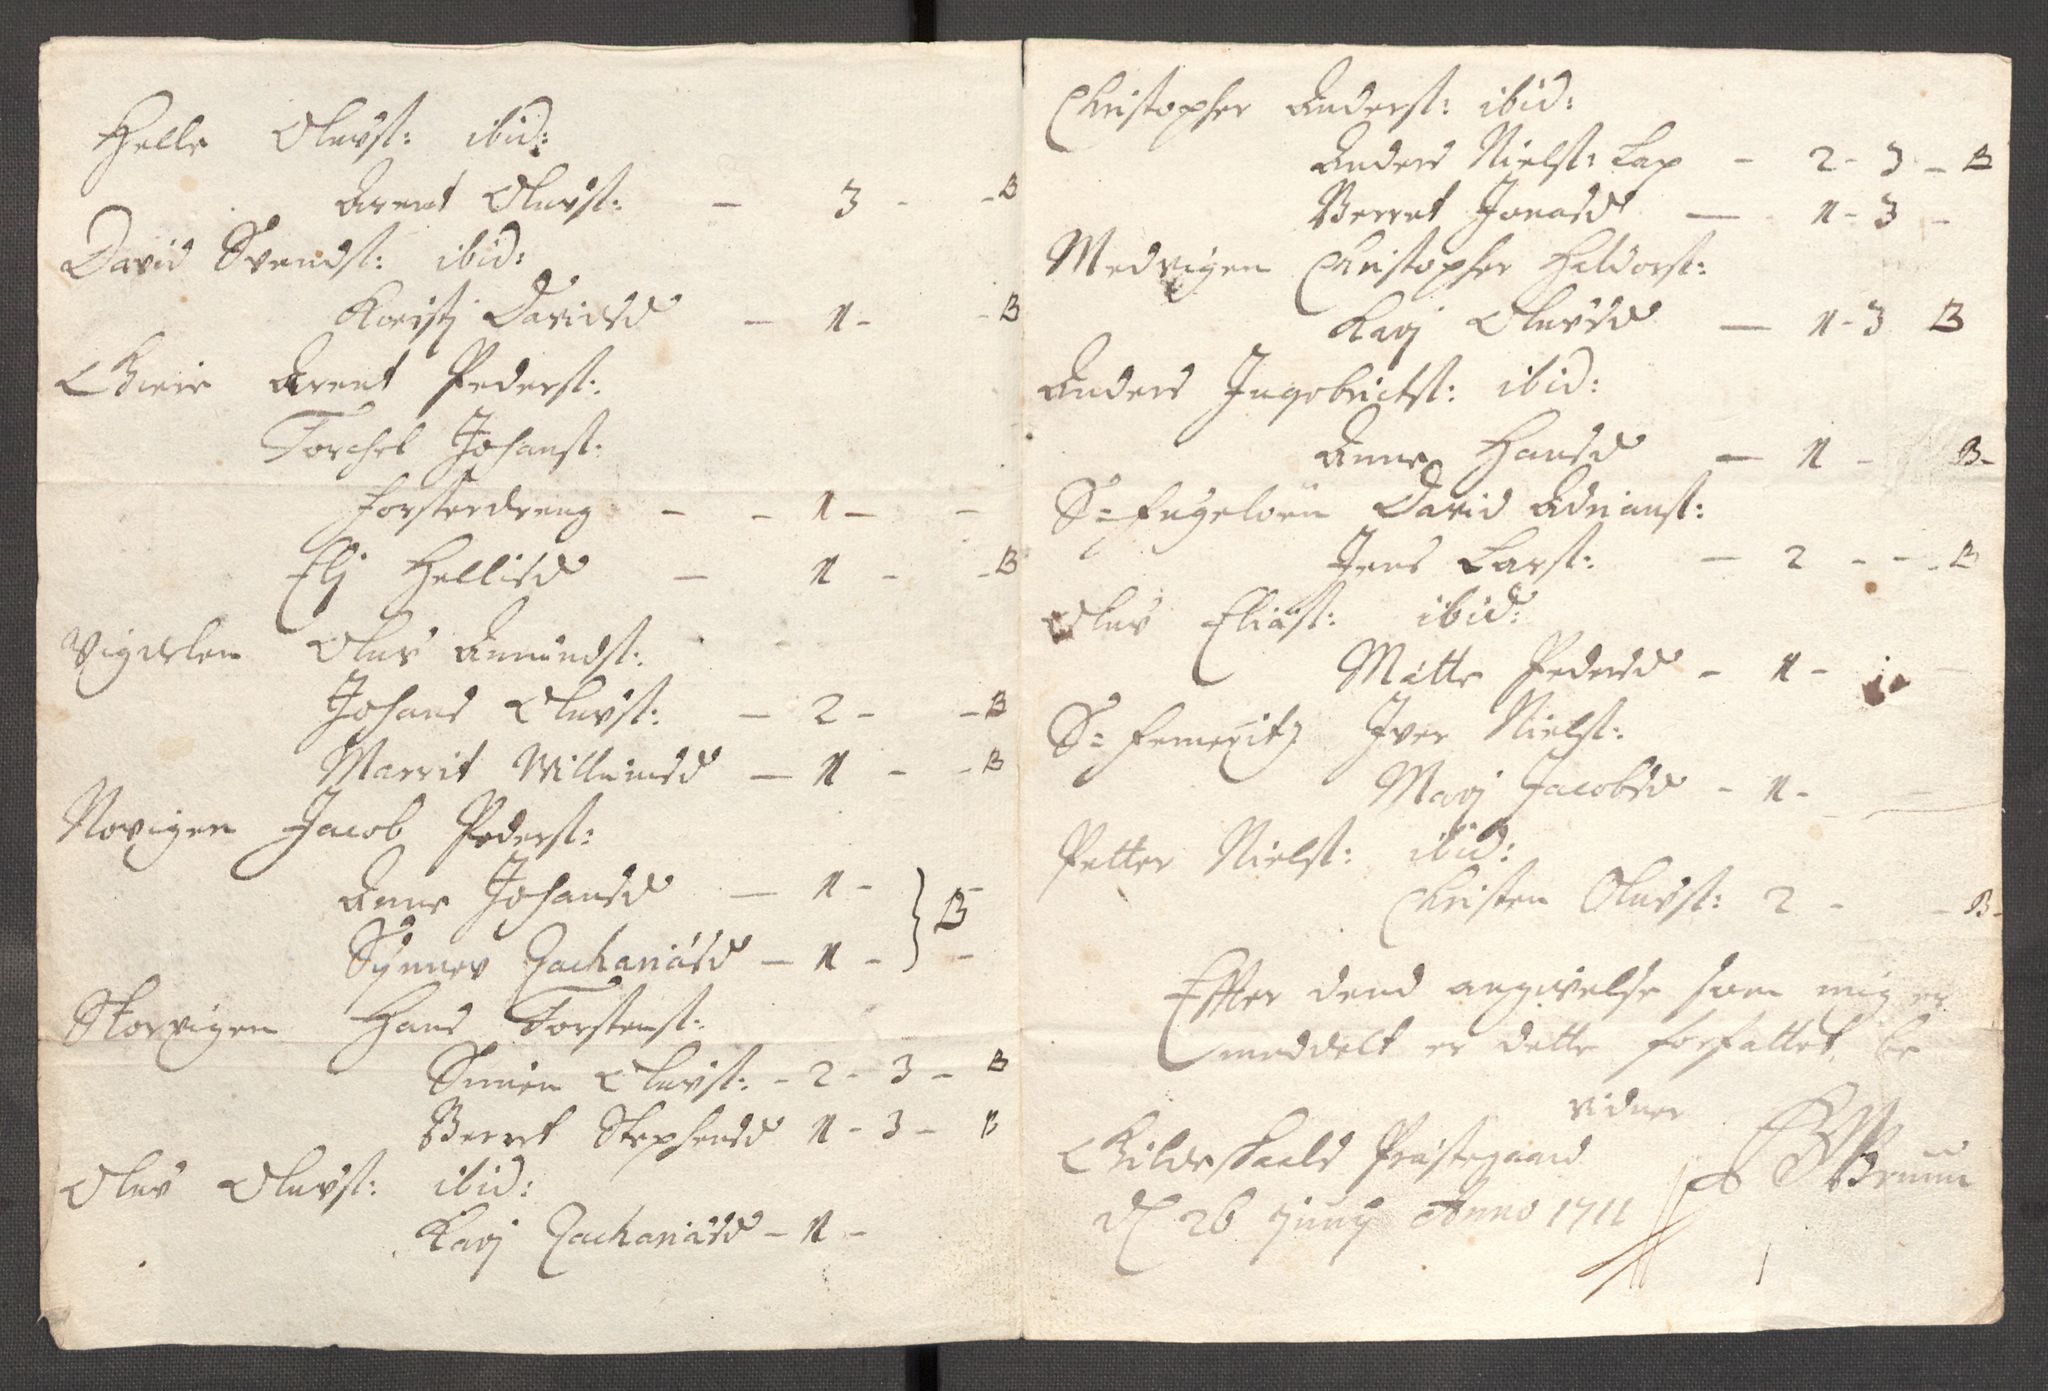 Helle Oluvst: ibid:
Arent Oluvst: — 3 - - B
David Svendst: ibid:
Koristj Davidsd — 1 - - B
Arent Pederst:
Torchel Johanst:
forsterdreng - - 1 - -
Elj Hellisd — 1 - - B
Vigdelen Oluv Amundst:
Johans Oluvst: — 2 - - B
Marrit Willumsd — 1 - - B
Novigen Jacob Pederst:
Anne Johansd — 1 - } B
Synnev Zachariasd — 1 - -
Storvigen Hans Torstenst:
Simen Oluvst: - 2 - 3 - B
Berret Stephensd 1 - 3 - B
Oluv Oluvst: ibid:
Karj Zachariasd - 1 -
Christopher Anderst: ibid:
Anders Nielst: Lap - 2 - 3 - B
Berret Jonasd — 1 - 3 -
Medvigen Christopher Haldorst:
Karj Oluvsd — 1 - 3 B
Anders Ingebrictst: ibid:
Anne Hansd — 1 - B -
S= fugeloen David Adrianst:
Jens Larst: — 2 - - - B
Oluv Eliast: ibid:
Mätte Pedersd - 1 - -
S= Iver Nielst:
Marj Jacobsd - 1 - -
Petter Nielst: ibid:
Christen Oluvst: 2 - - B -
Effter dend angivelse som mig er
meddelt er dette forfattet, be
vidner
Gildeskaals Præstegaard Bruun
d 26 Junij Anno 1711